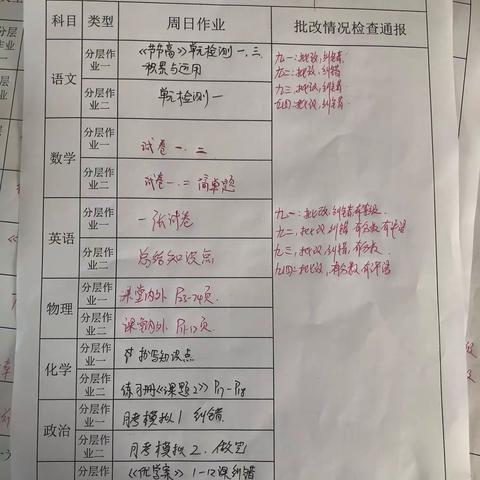 科目 类型 周日作业 批改情况检查通报
语文 分层作业一 《节节高》单元检测一、三 积累与运用
分层作业二 单元检测一
九一:批改,纠错
九二:批改,纠错
九三,批改,纠错
九四:批改,纠错
数学 分层作业一 试卷一、二
分层作业二 试卷一、二 简单题
英语 分层作业一 一张试卷
分层作业二 总结知识点
九一:批改,纠错,有等级.
九二,批改,纠错,有分数,有评语
九三,批改,纠错,有分数.
九四:批改,有分数,有评语
物理 分层作业一 课堂内外 P23-24页.
分层作业二 课堂内外 P11-12页.
化学 分层作业一 抄写知识点
分层作业二 练习册《课题2》P17-P18
政治 分层作业一 月考模拟1 纠错
分层作业二 月考模拟2.做完
分层作 《优学案》1-12课纠错